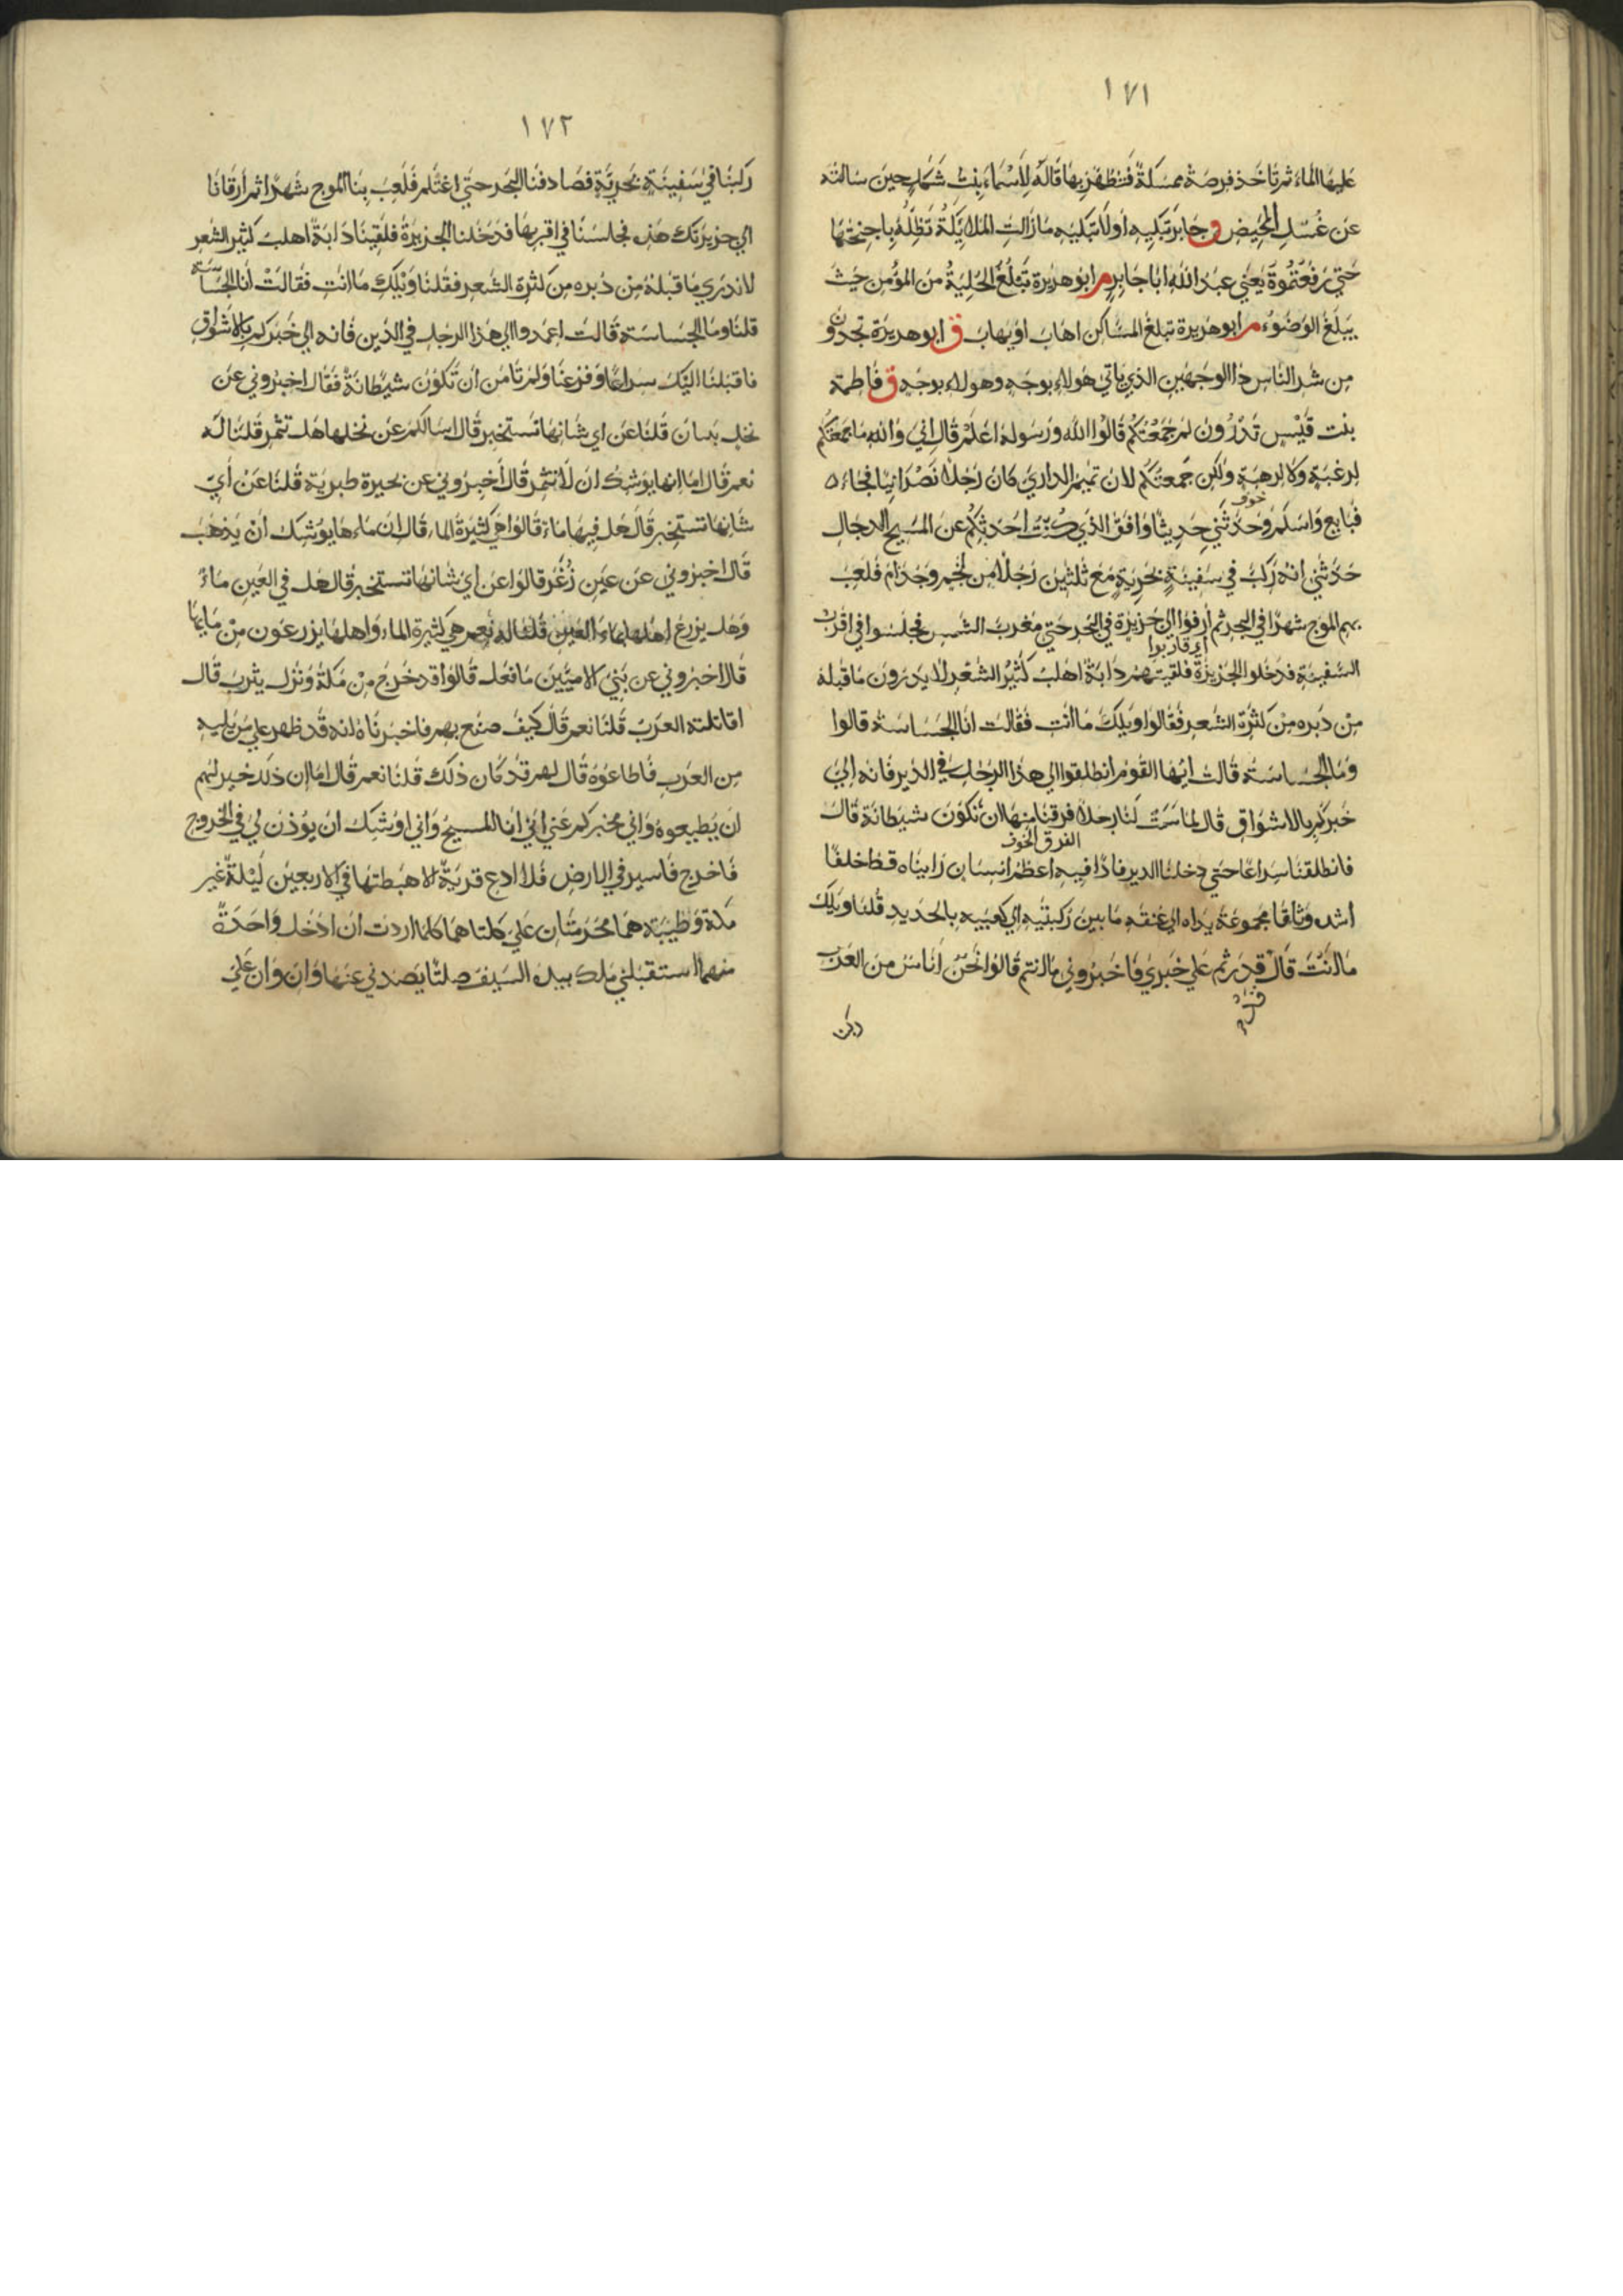 ١٧١
عليها الماء ثم تاخذ فرصة ممسكة فتطهر بها قاله لأسماء بنت شكل حين سالته
عن غسل المحيض و جابر تبكيه اولا تبكيه مازالت الملائكة تظله باجنحتها
حتي رفعتموه يعني عبد الله ابا جابر م ابو هريرة تبلغ الحلية من المؤمن حيث
يبلغ الوضوء م ابو هريرة تبلغ المساكن اهاب او يهاب ق ابو هريرة تجدون
من شر الناس ذا الوجهين الذي ياتي هولاء بوجه وهولاء بوجه ق فاطمة
بنت قيس تدرون لم جمعتكم قالوا الله ورسوله اعلم قال اني والله ما جمعتكم
لرغبة ولا لرهبة ولكن جمعتكم لان تميم الداري كان رجلا نصرانيا فجاء
خوف
فبايع واسلم وحدثني حديثا وافق الذي كنت احدثكم عن المسيح الدجال
حدثني انه ركب في سفينة بحرية مع ثلثين رجلا من لخم وجذام فلعب
بهم الموج شهرا في البحر ثم أرفؤا الي جزيرة في البحر حتي مغرب الشمس فجلسوا في اقرب
اي قاربوا
السفينة فدخلوا الجزيرة فلقيتهم دابة اهلب كثير الشعر لا يدرون ما قبله
من دبره من كثرة الشعر فقالوا ويلك ما انت فقالت انا الجساسة قالوا
وما الجساسة قالت ايها القوم انطلقوا الي هذا الرجل في الدير فانه الي
خبركم بالاشواق قال لما سمت لنا رجلا فرقنا منها ان تكون شيطانة قال
الفرق الخوف
فانطلقنا سراعا حتي دخلنا الدير فاذا فيه اعظم انسان رايناه قط خلقا
اشده وثاقا مجموعة يداه الي عنقه ما بين ركبتيه الي كعبيه بالحديد قلنا ويلك
ما انت قال قدرتم علي خبري فاخبروني ما انتم قالوا نحن اناس من العرب
ركبنا
١٧٢
ركبنا في سفينة بحرية فصادفنا البحر حتي اغتلم فلعب بنا الموج شهرا ثم أرفانا
الي جزيرتك هذه فجلسنا في اقربها فدخلنا الجزيرة فلقينا دابة اهلب كثير الشعر
لا ندري ما قبله من دبره من كثرة الشعر فقلنا ويلك ما انت فقالت أنا الجساسة
قلنا وما الجساسة قالت اعمدوا الي هذا الرجل في الدير فانه الي خبركم بالاشواق
فاقبلنا اليك سراعا وفزعنا ولم نامن ان تكون شيطانة فقال اخبروني عن
نخل بيسان قلنا عن اي شانها تستخبر قال اسالكم عن نخلها هل تثمر قلنا له
نعم قال اما انها يوشك ان لا تثمر قال أخبروني عن بحيرة طبرية قلنا عن أي
شانها تستخبر قال هل فيها ماء قالوا هي كثيرة الماء قال ان ماءها يوشك ان يذهب
قال اخبروني عن عين زغر قالوا عن اي شانها تستخبر قال هل في العين ماء
وهل يزرع اهلها بماء العين قلنا له نعم هي كثيرة الماء واهلها يزرعون من مايها
قال اخبروني عن نبي الاميين ما فعل قالوا قد خرج من مكة ونزل يثرب قال
اقاتلته العرب قلنا نعم قال كيف صنع بهم فاخبرناه انه قد ظهر علي من يليه
من العرب فاطاعوه قال لهم قد كان ذلك قلنا نعم قال اما ان ذلك خير لهم
ان يطيعوه واني مخبركم عني اني انا المسيح واني اوشك ان يوذن لي في الخروج
فاخرج فاسير في الارض فلا ادع قرية الا هبطتها في الاربعين ليلة غير
مكة وطيبة هما محرمتان علي كلتاهما كلما اردت ان ادخل واحدة
منهما استقبلني ملك بيده السيف صلتا يصدني عنها وان وان علي